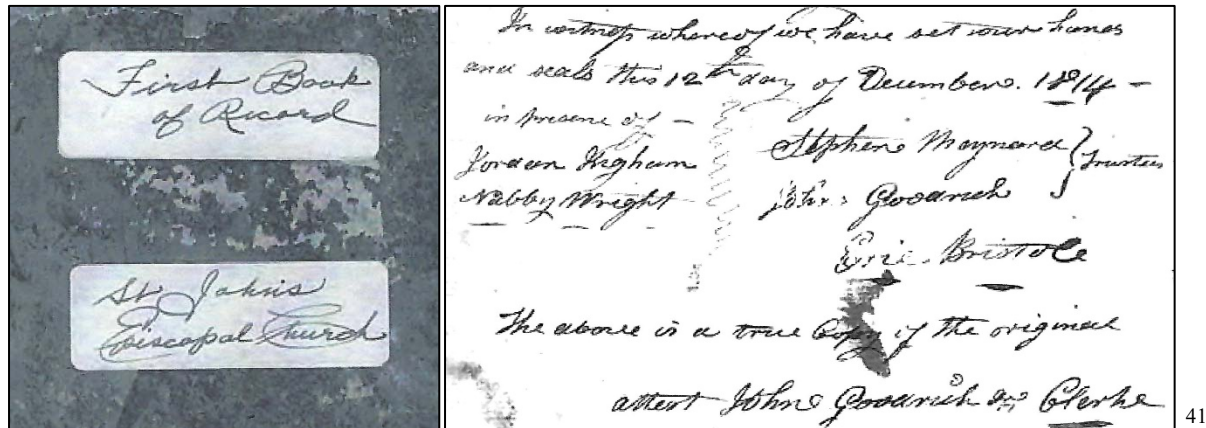 First Book
of Record
St Johns
Episcopal Church
In witness whereof we have set our hands
and seals this 12th day of December. 1814 –
in presence of –
Jordan Higham
Nabby Wright
Stephen Maynard
John Goodrich
Trustees
Bristole
The above is a true Copy of the original
attest John Goodrich Clerke
41